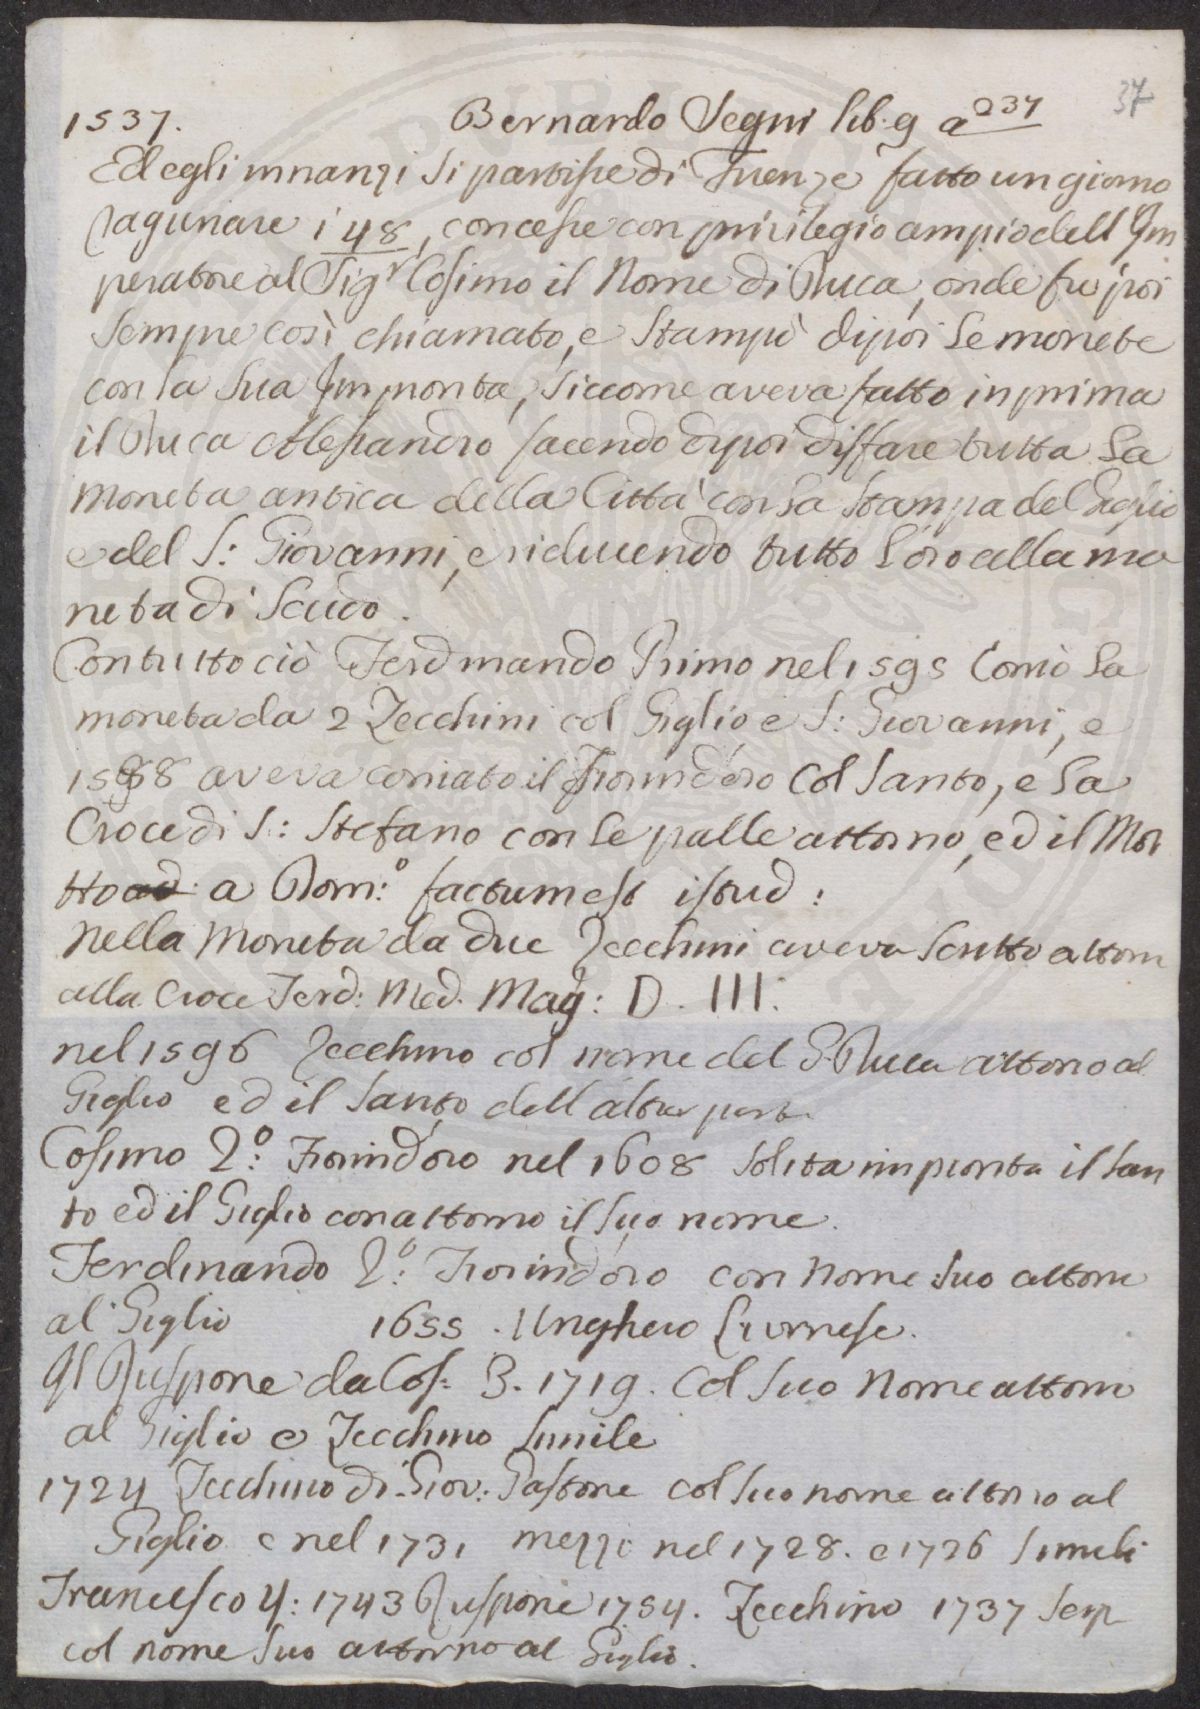 37
1537. Bernardo Segni lib. 9 a 237
Ed egli innanzi si partisse di Firenze fatto un giorno
ragunare i 48, concesse con privilegio ampio dell'Im
peratore al Sigr Cosimo il Nome di Duca, onde fu poi
sempre così chiamato, e stampò dipoi le monete
con la sua Impronta, siccome aveva fatto in prima
il Duca Alessandro facendo dipoi disfare tutta la
moneta antica della Città con la stampa del Giglio
e del S: Giovanni, e riducendo tutto l'oro alla mo
neta di Scudo.
Contuttociò Ferdinando Primo nel 1595 Coniò la
moneta da 2 Zecchini col Giglio e S: Giovanni, e
1598 aveva coniato il Fiorin d'oro col Santo, e la
Croce di S: Stefano con le palle attorno, ed il Mot
to a Dom:o factum est istud:
Nella Moneta da due Zecchini aveva scritto attorn
alla Croce Ferd: Med. Mag: D. III.
nel 1596 Zecchino col nome del G. Duca attorno al
Giglio ed il Santo dell'altra parte
Cosimo 2.o Fiorin d'oro nel 1608 solita impronta il San
to ed il Giglio con attorno il suo nome.
Ferdinando 2.o Fiorin d'oro con nome suo attorn
al Giglio 1655. Unghero Livornese.
Il Ruspone da Cos: 3. 1719. Col suo Nome attorn
al Giglio e Zecchino simile
1724 Zecchino di Giov: Gastone col suo nome attorno al
Giglio e nel 1731 mezzi nel 1728. e 1726 simili
Francesco 1743 Rusponi 1754. Zecchino 1737 semp
col nome suo attorno al Giglio.